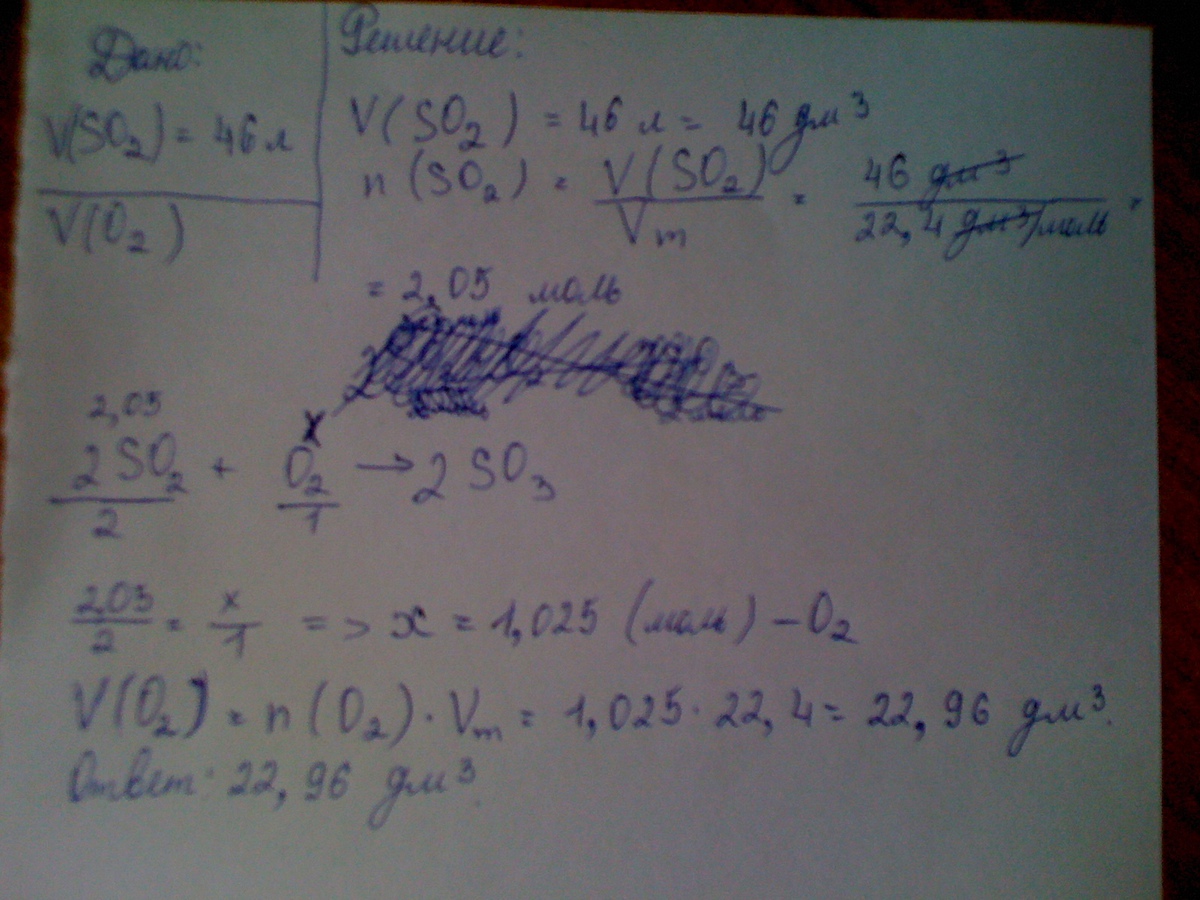 Дано:
V(SO₂) = 46 л
V(O₂)
Решение:
V(SO₂) = 46 л = 46 дм³
n(SO₂) = V(SO₂)/Vm = 46 дм³/22,4 дм³/моль =
= 2,05 моль
2,05 x
2SO₂ + O₂ → 2SO₃
2 1
205/2 = x/1 => x = 1,025 (моль) – O₂
V(O₂) = n(O₂) · Vm = 1,025 · 22,4 = 22,96 дм³.
Ответ: 22,96 дм³.